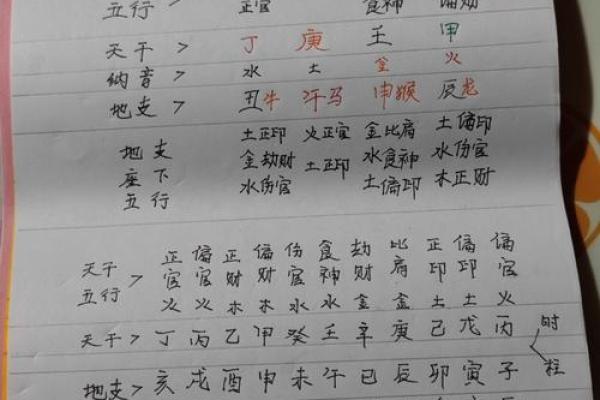 五行 > 正官 食神 偏财
天干 > 丁 庚 壬 甲
纳音 > 水 土 金 火
地支 > 丑牛 午马 申猴 辰龙
土正印 火正官 金比肩 土偏印
地支
金劫财 土正印 水食神 水伤官
座下
水伤官 土偏印 木正财
五行
正 偏 正 偏 伤 食 劫 比 正 偏 偏
天干 官 官 财 财 官 神 财 肩 印 印 官
五行 > 火 火 木 木 水 水 金 金 土 土 火
天干 > 丁 丙 乙 甲 癸 壬 辛 庚 己 戊 丙 时
柱
地支 > 亥 戌 酉 申 未 午 巳 辰 卯 寅 子